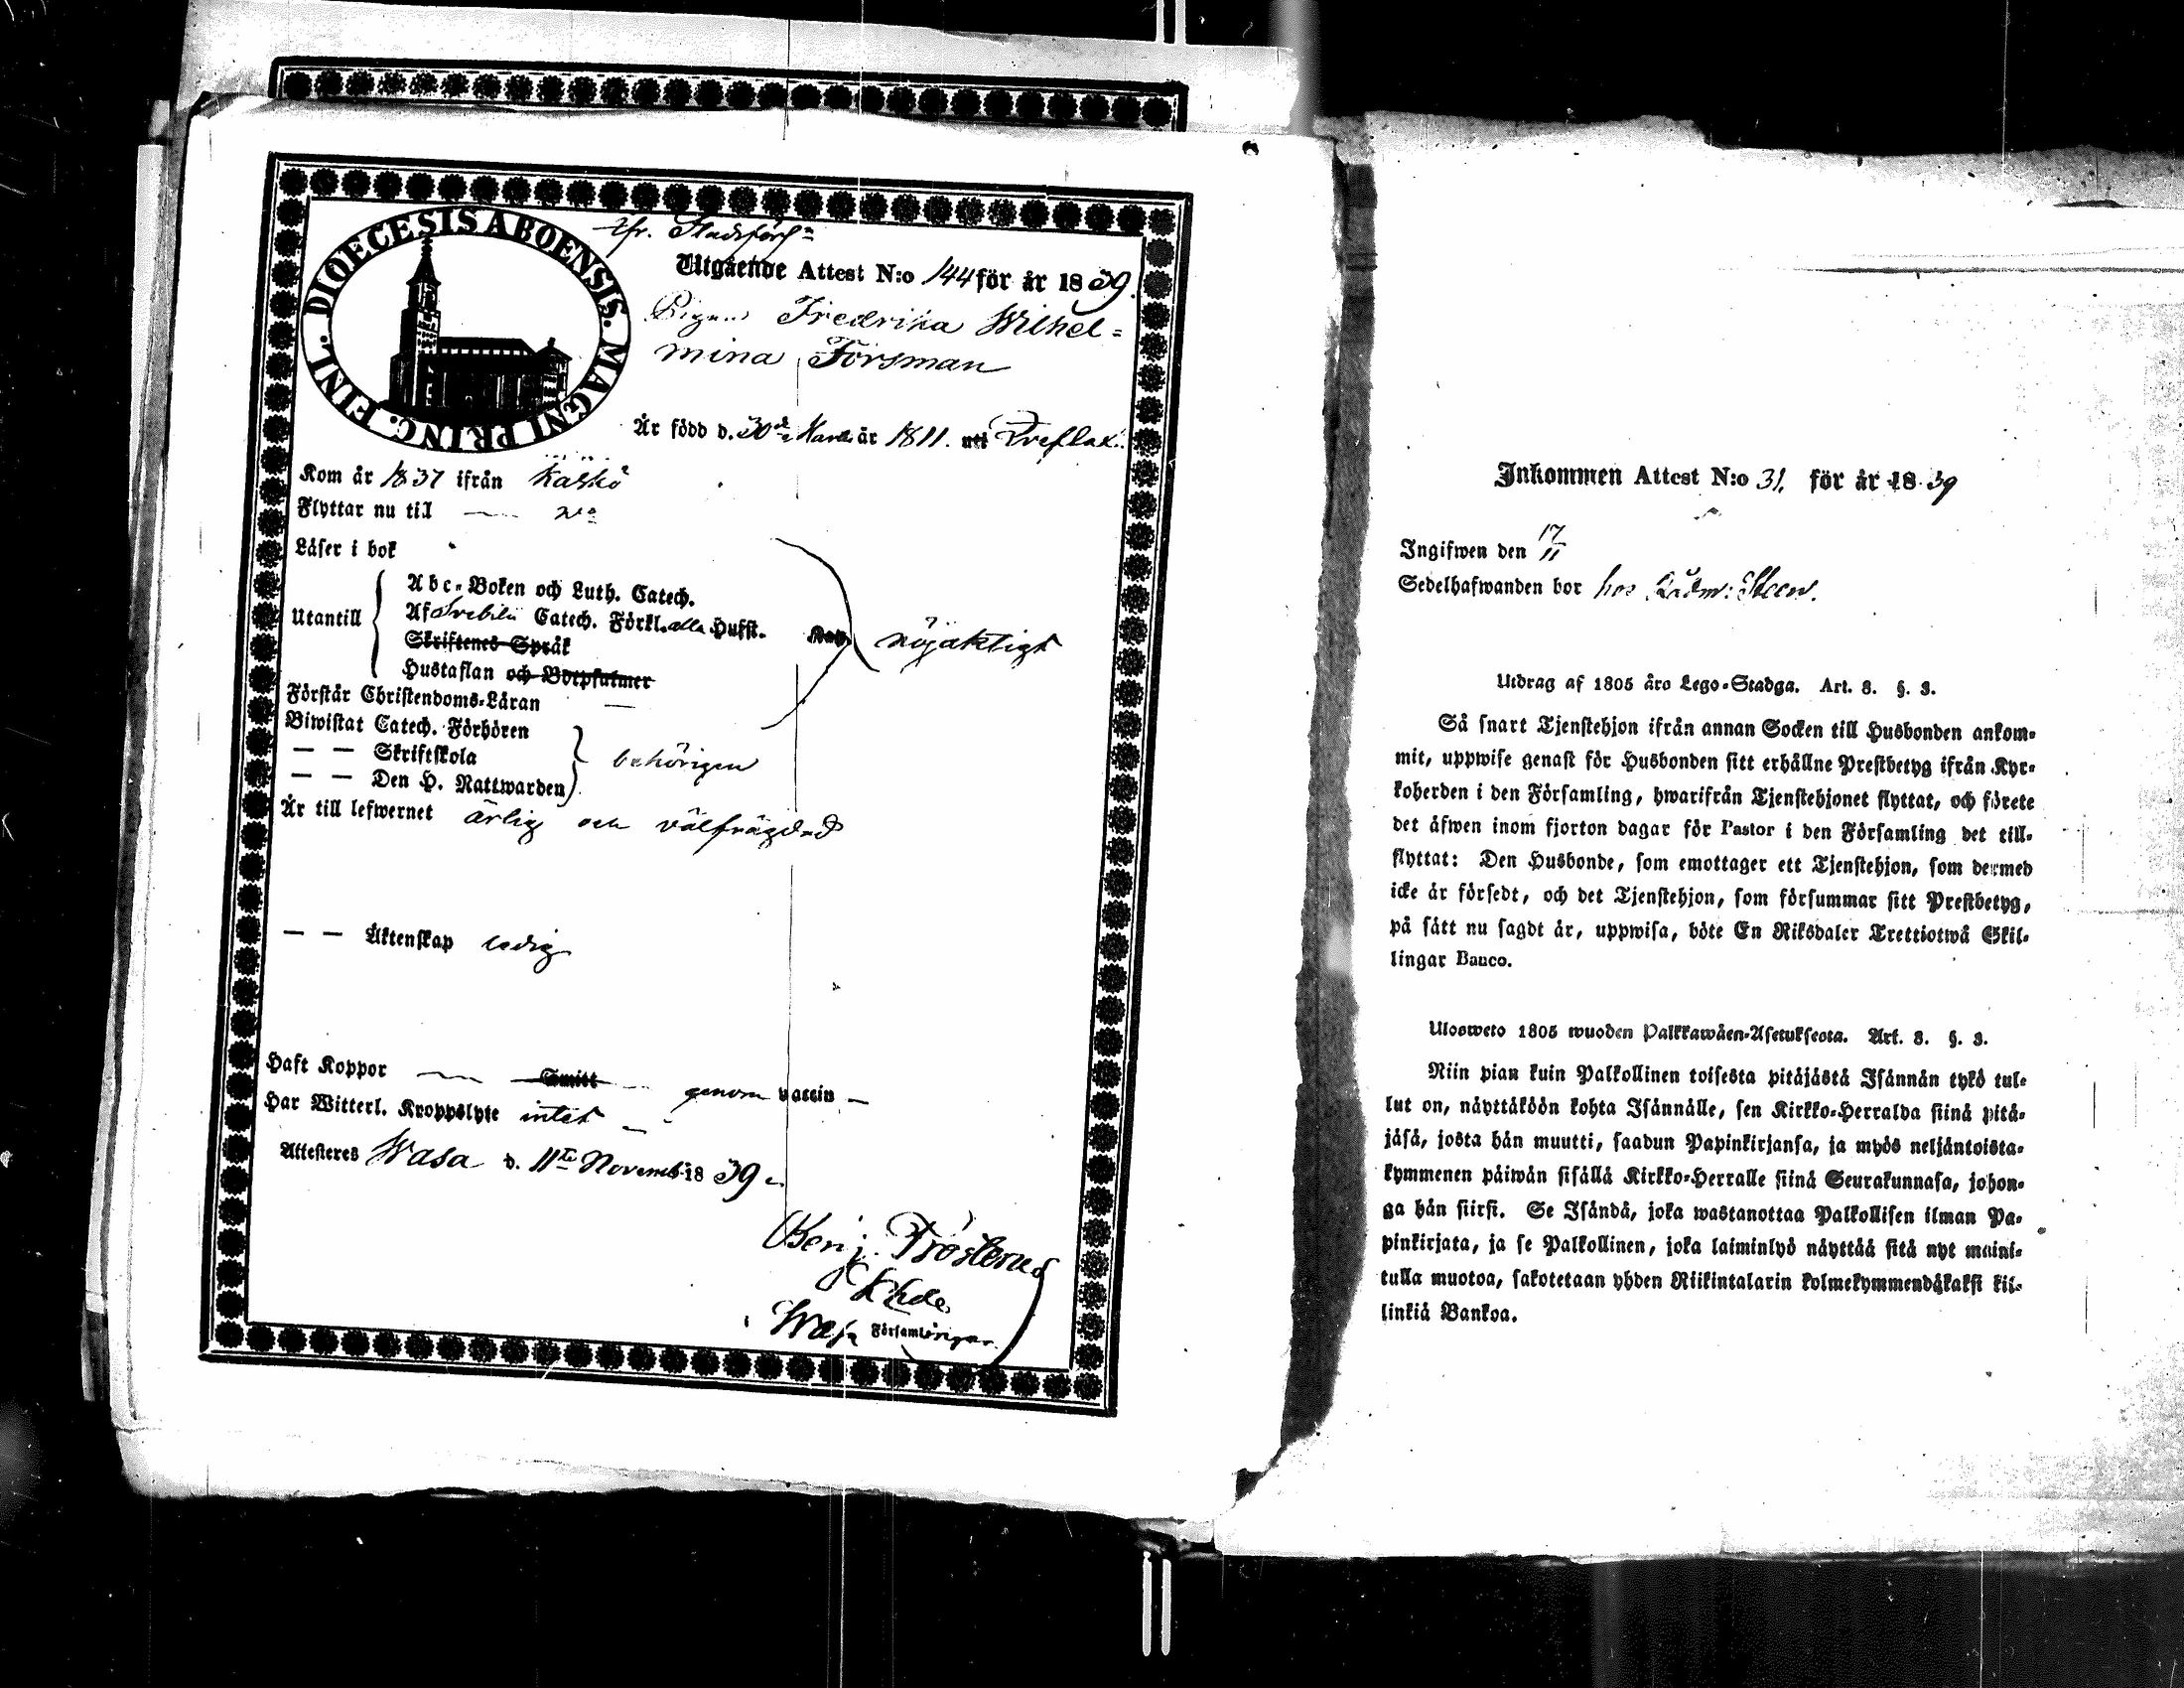 DIOECESIS ABOENSIS. MAGNI PRINC. FINL.
fr. Stadsförs=
Utgående Attest N:o 144 för år 1839.
Pigan Fredrika Wilhel=
mina Forsman
Är född d. 30de Mars år 1811. uti Treflax.
Kom år 1837 ifrån Kaskö
Flyttar nu till — —
Läser i bok
Utantill
Abc-Boken och Luth. Catech.
Af Svebilii Catech. Förkl. alla Hufst.
Skriftenes Språk
Hustaflan och Botpsalmer
nöjaktigt
Förstår Christendoms-Läran —
Biwistat Catech. Förhören
— — Skriftskola
— — Den H. Nattwarden
behörigen
Är till lefwernet ärlig och välfrägdad
— — Äktenskap ledig
Haft Koppor — Smitt — genom vaccin —
Har Witterl. Kroppslyte intet —
Attesteres Wasa d. 11te Novemb. 1839.
Benj. Frosterus
Khde
i Wasa Församlingar.
Inkommen Attest N:o 31. för år 1839
Ingifwen den 17/11
Sedelhafwanden bor hos Rådm: Steen.
Utdrag af 1805 års Lego-Stadga. Art. 3. §. 3.
Så snart Tjenstehjon ifrån annan Socken till Husbonden ankom-
mit, uppwise genast för Husbonden sitt erhållne Prestbetyg ifrån Kyr-
koherden i den Församling, hwarifrån Tjenstehjonet flyttat, och förete
det äfwen inom fjorton dagar för Pastor i den Församling det till-
flyttat: Den Husbonde, som emottager ett Tjenstehjon, som dermed
icke är försedt, och det Tjenstehjon, som försummar sitt Prestbetyg,
på sätt nu sagdt är, uppwisa, böte En Riksdaler Trettiotwå Skil-
lingar Banco.
Ulosweto 1805 wuoden Palkkawäen-Asetuksesta. Art. 3. §. 3.
Niin pian kuin Palkollinen toisesta pitäjästä Isännän tykö tul-
lut on, näyttäköön kohta Isännälle, sen Kirkko-Herralda siinä pitä-
jäsä, josta hän muutti, saadun Papinkirjansa, ja myös neljäntoista-
kymmenen päiwän sisällä Kirkko-Herralle siinä Seurakunnasa, johon-
ga hän siirsi. Se Isändä, joka wastanottaa Palkollisen ilman Pa-
pinkirjata, ja se Palkollinen, joka laiminlyö näyttää sitä nyt maini-
tulla muotoa, sakotetaan yhden Riikintalarin kolmekymmendäkaksi kil-
linkiä Bankoa.